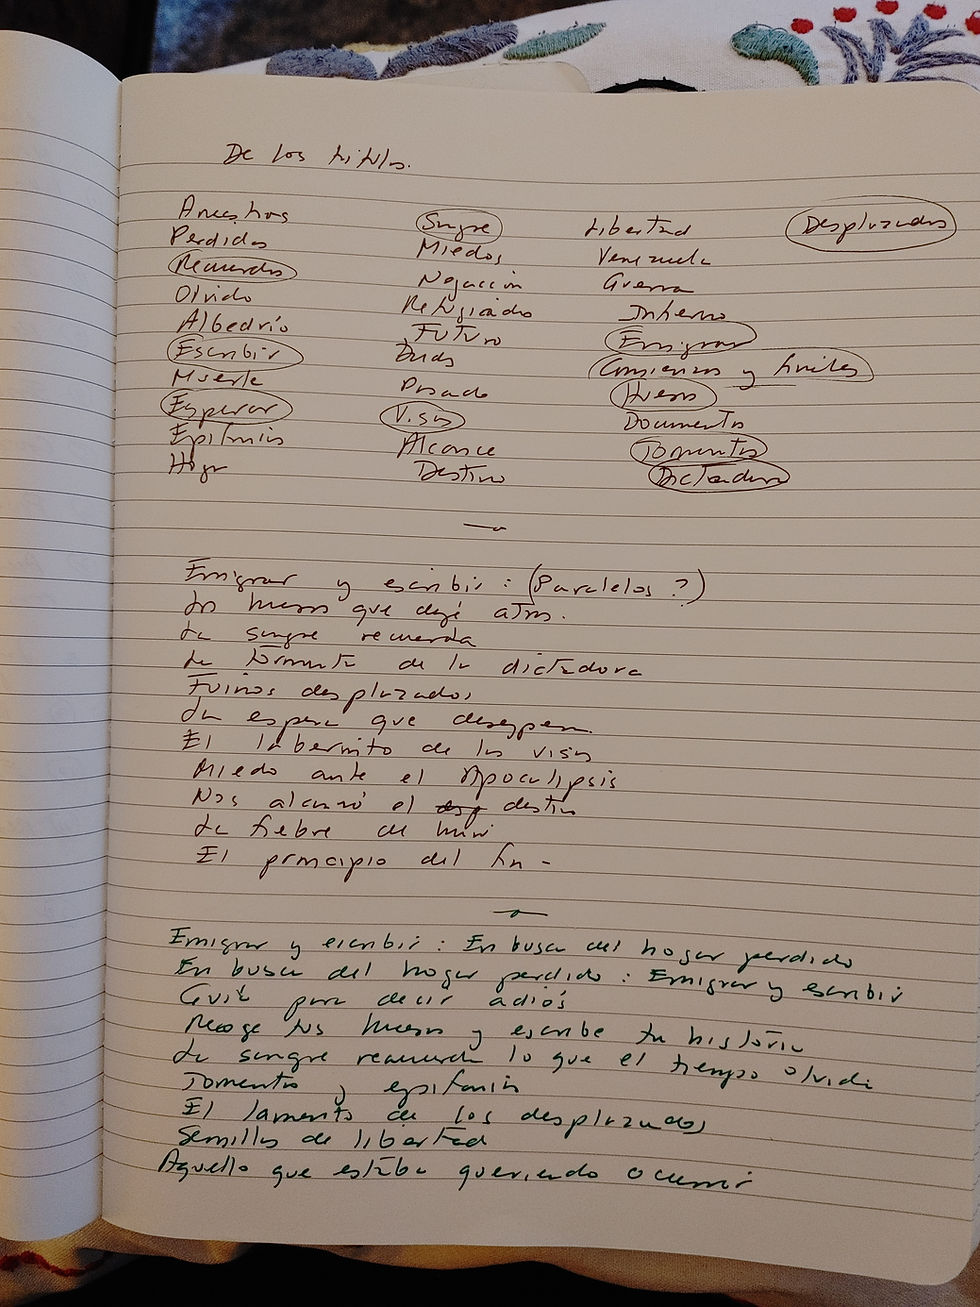 De los títulos.
Ancestros
Perdidas
Recuerdos
Olvido
Albedrío
Escribir
Muerte
Esperar
Epifanías
Hogar
Sangre
Miedos
Negación
Refugiado
Futuro
Duda
Pasado
Visas
Alcance
Destino
Libertad
Venezuela
Guerra
Infierno
Emigrar
Comienzos y finales
Huesos
Documentos
Tormentas
Dictadura
Desplazados
Emigrar y escribir : (Paralelos ?)
Los huesos que dejé atrás.
La sangre recuerda
La tormenta de la dictadora
Fuimos desplazados
La espera que desespera
El laberinto de las visas
Miedo ante el Apocalipsis
Nos alcanzó el destino
La fiebre de
El principio del fin -
Emigrar y escribir : En busca del hogar perdido
En busca del hogar perdido : Emigrar y escribir
para decir adiós
Recoge tus huesos y escribe tu historia
La sangre recuerda lo que el tiempo olvida
Tormenta y epifanía
El lamento de los desplazados
Semillas de libertad
Aquello que estaba queriendo ocurrir